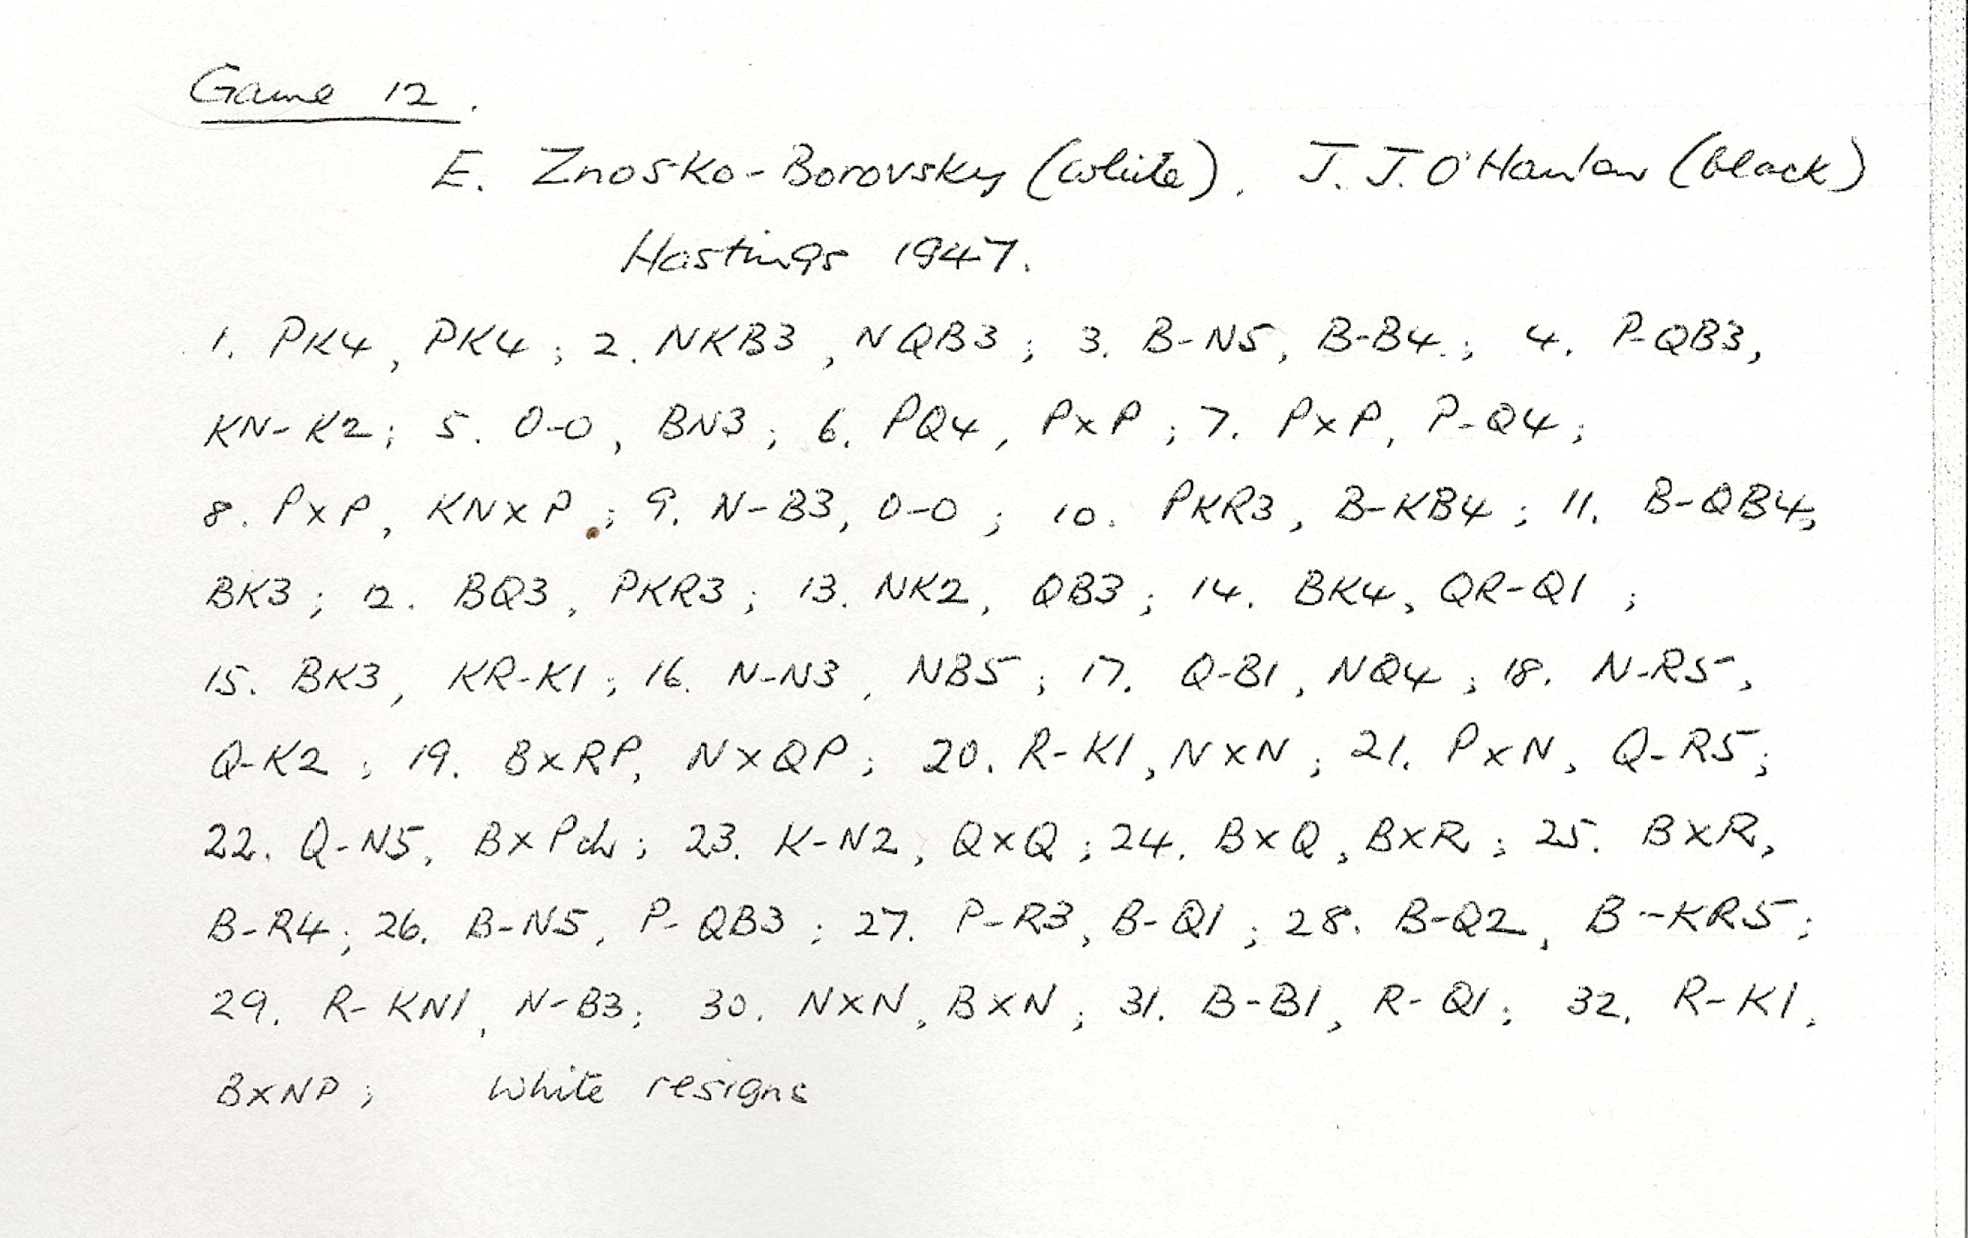 Game 12.
E. Znosko-Borovsky (white). J. J. O'Hanlon (black)
Hastings 1947.
1. PK4, PK4; 2. NKB3, NQB3; 3. B-N5, B-B4.; 4. P-QB3,
KN-K2; 5. O-O, BN3; 6. PQ4, PxP; 7. PxP, P-Q4;
8. PxP, KNxP; 9. N-B3, O-O; 10. PKR3, B-KB4; 11. B-QB4,
BK3; 12. BQ3, PKR3; 13. NK2, QB3; 14. BK4, QR-Q1;
15. BK3, KR-K1; 16. N-N3, NB5; 17. Q-B1, NQ4; 18. N-R5,
Q-K2; 19. BxRP, NxQP; 20. R-K1, NxN; 21. PxN, Q-R5;
22. Q-N5, BxPch; 23. K-N2, QxQ; 24. BxQ, BxR; 25. BxR,
B-R4; 26. B-N5, P-QB3; 27. P-R3, B-Q1; 28. B-Q2, B-KR5;
29. R-KN1, N-B3; 30. NxN, BxN; 31. B-B1, R-Q1; 32. R-K1,
BxNP; White resigns